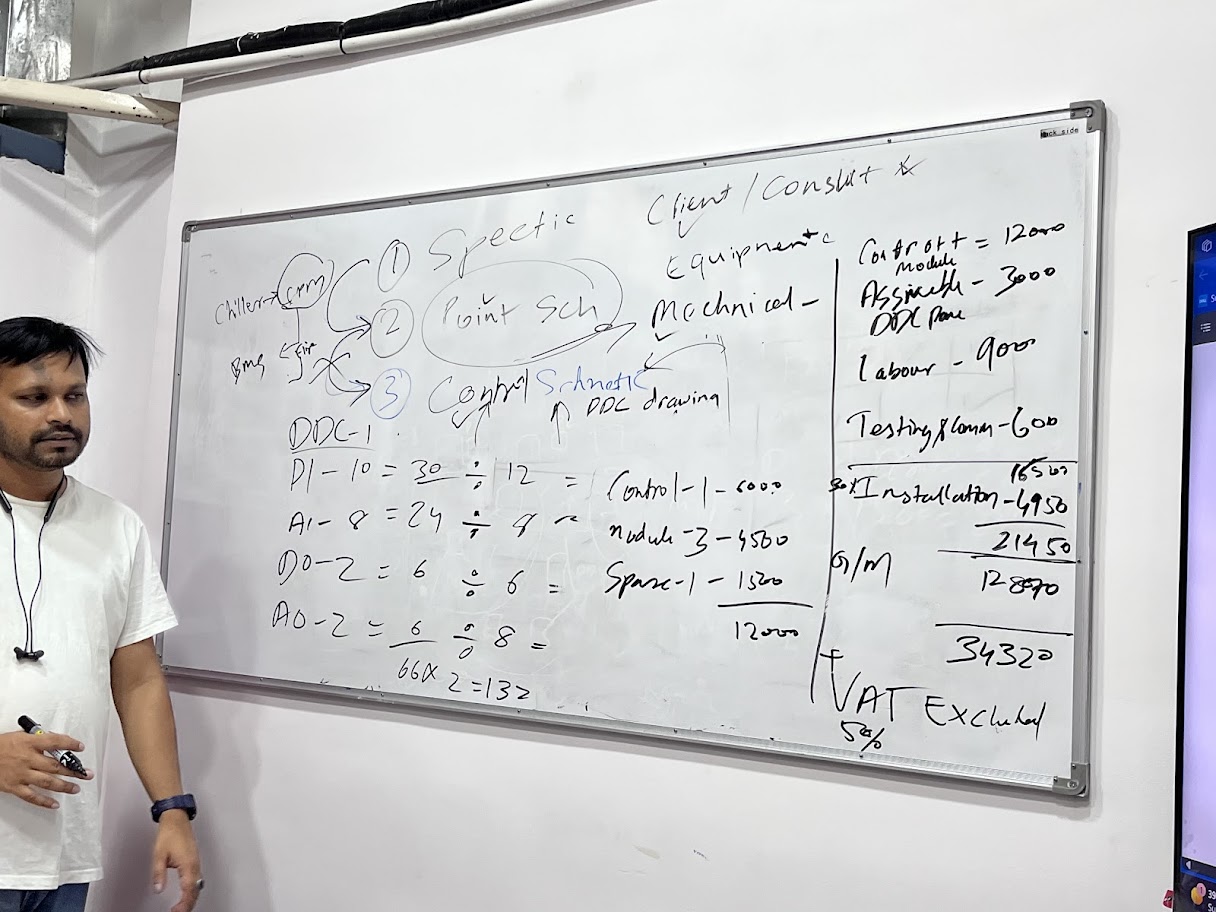 Client / Conslt
① Spectic
Equipment
Chiller
CPM
② Point Sch
Mechnical -
BMS
③ Control Schmetic
DDC drawing
DDC-1
DI - 10 = 30 ÷ 12 =
AI - 8 = 24 ÷ 8 =
DO - 2 = 6 ÷ 6 =
AO - 2 = 6 ÷ 8 =
66 x 2 = 132
Control - 1 - 6000
module - 3 - 4500
Spare - 1 - 1500
12000
module = 12000
- 3000
DDC
Labour - 900
Testing & Comm - 600
16500
30% Installation - 4950
21450
O/M 12870
34320
+ VAT Excluded
5%